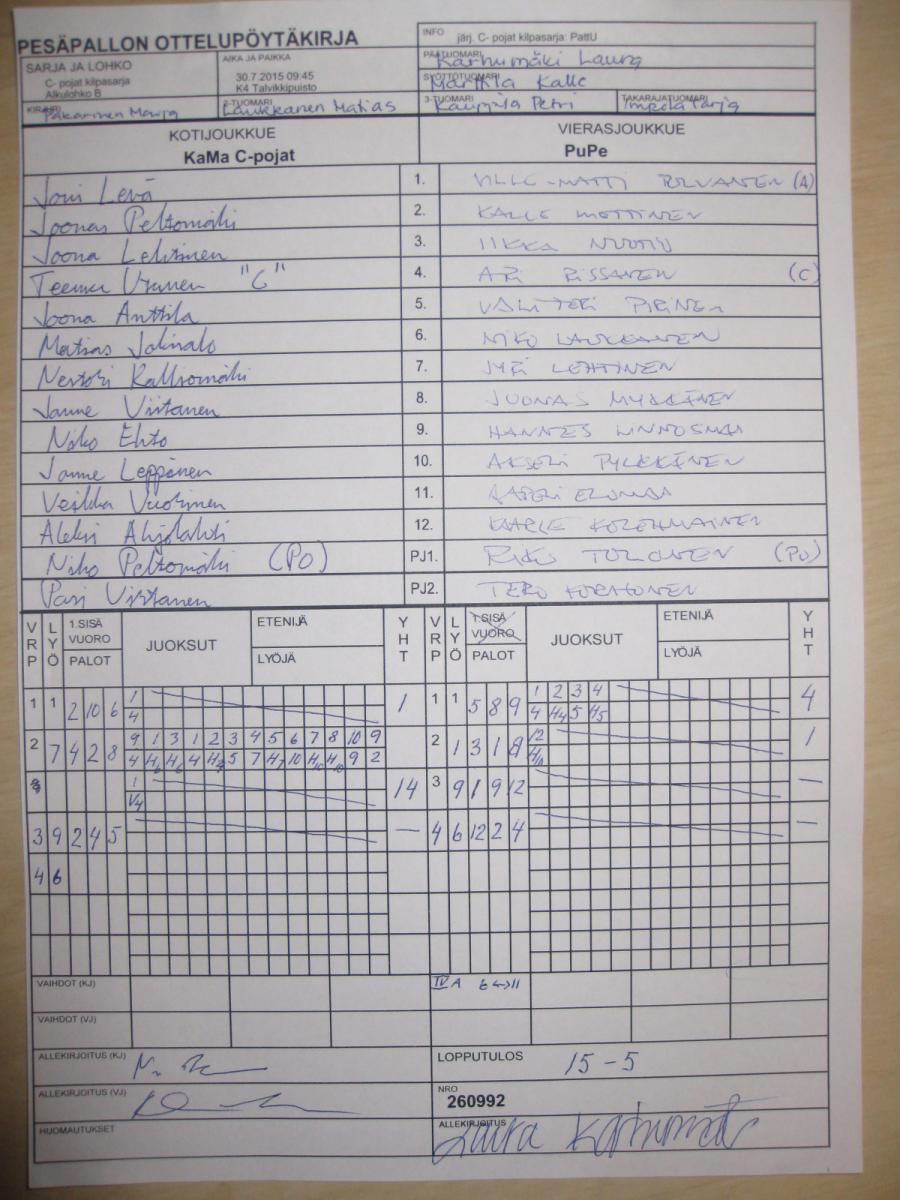 PESÄPALLON OTTELUPÖYTÄKIRJA
INFO järj. C- pojat kilpasarja: PattU
SARJA JA LOHKO
C- pojat kilpasarja
Alkulohko B
AIKA JA PAIKKA
30.7.2015 09:45
K4 Talvikkipuisto
PÄÄTUOMARI Karhumäki Laura
SYÖTTÖTUOMARI Marttila Kalle
KIRJURI Pakarinen Marja
2-TUOMARI Laukkanen Matias
3-TUOMARI Kauppila Petri
TAKARAJATUOMARI Impola Tarja
KOTIJOUKKUE
KaMa C-pojat
VIERASJOUKKUE
PuPe
Joni Levä 1. VILLE-MATTI TOLVANEN (A)
Joonas Peltomäki 2. KALLE MOTTINEN
Joona Lehtinen 3. IIKKA NUUTIU
Teemu "C" 4. ARI RISSANEN (C)
Joona Anttila 5. VALTTERI PIRINEN
Matias 6. NIKO LAUKKANEN
Kalliomäki 7. JYRI LEHTINEN
Janne Virtanen 8. JUONAS MYKKÄNEN
Niko Ehto 9. HANNES LINNOSMAA
Janne Leppänen 10. AKSELI PYLKKÄNEN
Veikka Vuorinen 11. AAPELI ELOMAA
Aleksi Ahjolahti 12. KAARLE KOLEHMAINEN
Niko Peltomäki (PO) PJ1. RIKU TOLONEN (PO)
Pasi Virtanen PJ2. TERO KORHONEN
VRP LYÖ 1.SISÄ VUORO PALOT JUOKSUT ETENIJÄ LYÖJÄ YHT VRP LYÖ 1.SISÄ VUORO PALOT JUOKSUT ETENIJÄ LYÖJÄ YHT
1 1 2 10 6 1 1 1 1 5 8 9 1 2 3 4 4
4 4 H4 5 H5
2 7 4 2 8 9 1 3 1 2 3 4 5 6 7 8 10 9 2 1 3 1 8 12 1
4 H6 H6 4 5 7 H7 10 H10 H10 9 2
1 14 3 9 1 9 12 —
V4
3 9 2 4 5 — 4 6 12 2 4 —
4 6
VAIHDOT (KJ) IV A 6↔11
VAIHDOT (VJ)
ALLEKIRJOITUS (KJ)
LOPPUTULOS 15-5
ALLEKIRJOITUS (VJ)
NRO
260992
HUOMAUTUKSET
ALLEKIRJOITUS Laura Karhumäki